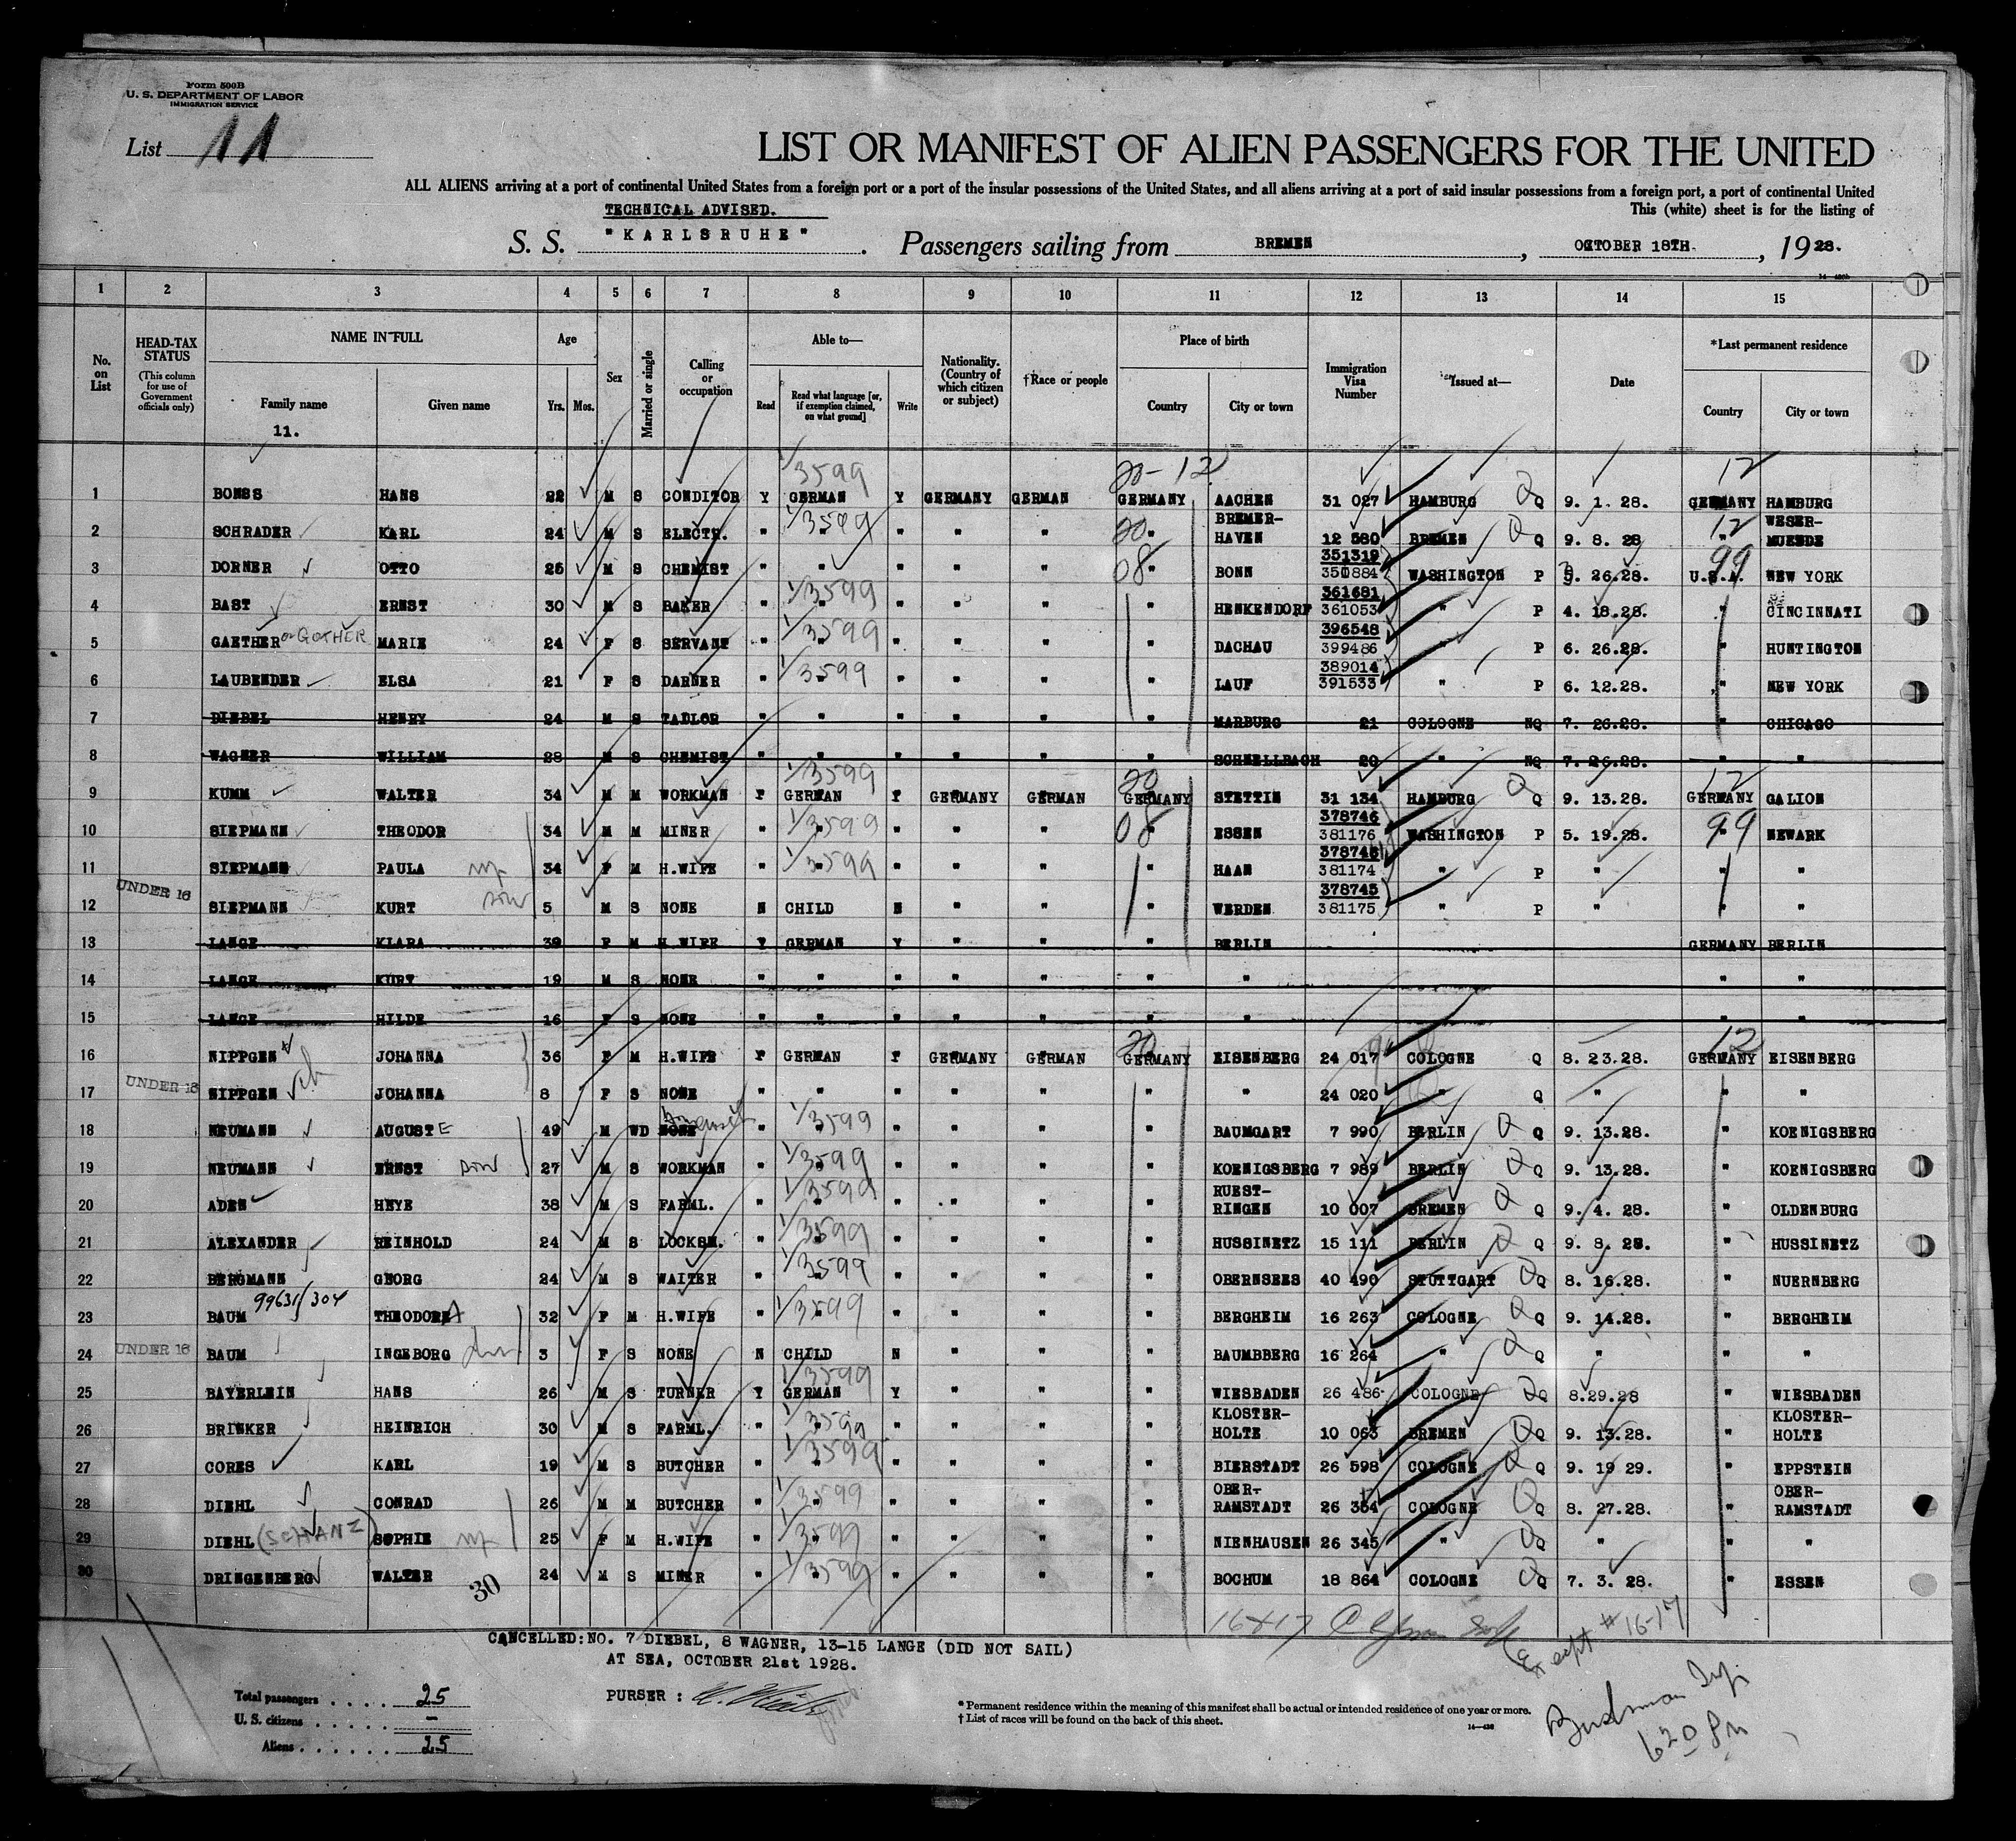 Form 500B
U. S. DEPARTMENT OF LABOR
IMMIGRATION SERVICE
List 11
LIST OR MANIFEST OF ALIEN PASSENGERS FOR THE UNITED
ALL ALIENS arriving at a port of continental United States from a foreign port or a port of the insular possessions of the United States, and all aliens arriving at a port of said insular possessions from a foreign port, a port of continental United
TECHNICAL ADVISED.
This (white) sheet is for the listing of
S. S. "KARLSRUHE". Passengers sailing from BREMEN, OKTOBER 18TH., 1928.
1 2 3 4 5 6 7 8 9 10 11 12 13 14 15
No. on List
HEAD-TAX STATUS
(This column for use of Government officials only)
NAME IN FULL
Family name
Given name
Age
Yrs. Mos.
Sex
Married or single
Calling or occupation
Able to—
Read
Read what language [or, if exemption claimed, on what ground]
Write
Nationality. (Country of which citizen or subject)
†Race or people
Place of birth
Country
City or town
Immigration Visa Number
Issued at—
Date
*Last permanent residence
Country
City or town
11.
1/3599 20-12 12
1 BONSS HANS 22 M S CONDITOR Y GERMAN Y GERMANY GERMAN GERMANY AACHEN 31 027 HAMBURG Q Q 9. 1. 28. GERMANY HAMBURG
2 SCHRADER KARL 24 M S ELECTR. " 1/3599 " " " 20 " BREMER-HAVEN 12 580 BREMEN Q Q 9. 8. 28 12 " WESER-MUENDE
3 DORNER OTTO 25 M S CHEMIST " " " " " 08 " BONN 351319 350884 WASHINGTON P 26.28. 99 U.S.A. NEW YORK
4 BAST ERNST 30 M S BAKER " 1/3599 " " " " HENKENDORF 361681 361053 " P 4. 18.28. " CINCINNATI
5 GAETHER or GOTHER MARIE 24 F S SERVANT " 1/3599 " " " " DACHAU 396548 399486 " P 6. 26.28. " HUNTINGTON
6 LAUBENDER ELSA 21 F S DARNER " 1/3599 " " " " LAUF 389014 391533 " P 6. 12.28. " NEW YORK
7 DIEBEL HENRY 24 M S TAILOR " " " " " " MARBURG 21 COLOGNE NQ 7. 26.28. " CHICAGO
8 WAGNER WILLIAM 28 M S CHEMIST " " " " " " SCHNELLBACH 20 " NQ 7. 26.28. " "
9 KUMM WALTER 34 M M WORKMAN " 1/3599 GERMAN " GERMANY GERMAN 20 GERMANY STETTIN 31 134 HAMBURG Q Q 9. 13.28. 12 GERMANY GALION
10 SIEPMANN THEODOR 34 M M MINER " 1/3599 " " " 08 " ESSEN 378746 381176 WASHINGTON P 5. 19.28. 99 " NEWARK
11 SIEPMANN PAULA 34 F M H.WIFE " 1/3599 " " " " HAAN 381174 " P " " "
UNDER 16
12 SIEPMANN KURT 5 M S NONE N CHILD N " " " WERDEN 378745 381175 " P " " "
13 LANGE KLARA M H.WIFE Y GERMAN Y " " " BERLIN GERMANY BERLIN
14 LANGE KURT 19 M S NONE " " " " " " " " "
15 LANGE HILDE 16 F S NONE " " " " " " " " "
16 NIPPGEN JOHANNA 36 F M H.WIFE " GERMAN " GERMANY GERMAN 20 GERMANY EISENBERG 24 017 COLOGNE Q 8. 23.28. 12 GERMANY EISENBERG
UNDER 16
17 NIPPGEN JOHANNA 8 F S NONE " " " " " " " 24 020 " Q " " "
18 NEUMANN AUGUSTE 49 M WD NONE " 1/3599 " " " " BAUMGART 7 990 BERLIN Q Q 9. 13.28. " KOENIGSBERG
19 NEUMANN ERNST son 27 M S WORKMAN " 1/3599 " " " " KOENIGSBERG 7 989 BERLIN Q Q 9. 13.28. " KOENIGSBERG
20 ADEN HEYE 38 M S FARML. " 1/3599 " " " " RUEST-RINGEN 10 007 BREMEN Q Q 9. 4. 28. " OLDENBURG
21 ALEXANDER REINHOLD 24 M S LOCKSM. " 1/3599 " " " " HUSSINETZ 15 111 BERLIN Q Q 9. 8. 28. " HUSSINETZ
22 BERGMANN GEORG 24 M S WAITER " 1/3599 " " " " OBERNSEES 40 490 STUTTGART Q Q 8. 16.28. " NUERNBERG
99631/304
23 BAUM THEODORA 32 F M H.WIFE " 1/3599 " " " " BERGHEIM 16 263 COLOGNE Q Q 9. 14.28. " BERGHEIM
UNDER 16
24 BAUM INGEBORG 3 F S NONE N CHILD N " " " BAUMBBERG 16 264 " Q Q " " "
25 BAYERLEIN HANS 26 M S TURNER Y 1/3599 GERMAN Y " " " WIESBADEN 26 486 COLOGNE Q Q 8.29.28 " WIESBADEN
26 BRINKER HEINRICH 30 M S FARML. " 1/3599 " " " " KLOSTER-HOLTE 10 063 BREMEN Q Q 9. 13.28. " KLOSTER-HOLTE
27 CORES KARL 19 M S BUTCHER " 1/3599 " " " " BIERSTADT 26 598 COLOGNE Q Q 9. 19 29. " EPPSTEIN
28 DIEHL CONRAD 26 M M BUTCHER " 1/3599 " " " " OBER-RAMSTADT 26 334 COLOGNE Q Q 8. 27.28. " OBER-RAMSTADT
29 DIEHL (SCHANZ) SOPHIE 25 F M H.WIFE " 1/3599 " " " " NIENHAUSEN 26 345 " Q Q " " "
30 DRINGENBERG WALTER 24 M S MINER " 1/3599 " " " " BOCHUM 18 864 COLOGNE Q Q 7. 3. 28. " ESSEN
30
16+17
Except #16-17
CANCELLED: NO. 7 DIEBEL, 8 WAGNER, 13-15 LANGE (DID NOT SAIL)
AT SEA, OCTOBER 21st 1928.
PURSER :
Total passengers . . . . 25
U. S. citizens . . . . . –
Aliens . . . . . . 25
* Permanent residence within the meaning of this manifest shall be actual or intended residence of one year or more.
† List of races will be found on the back of this sheet.